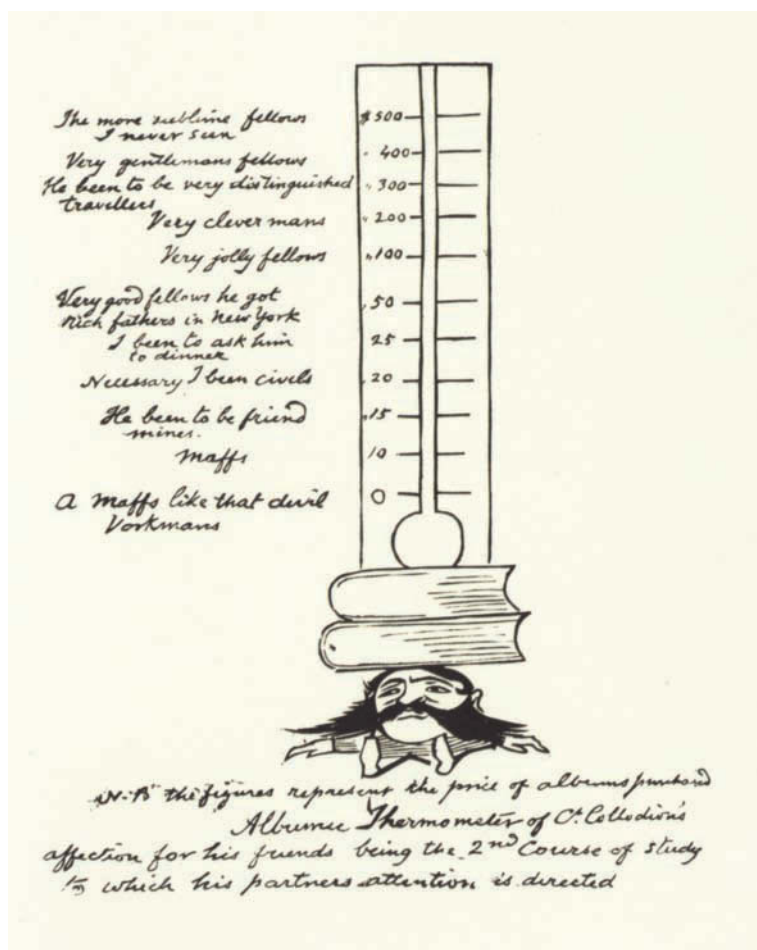 The more sublime fellows
I never seen
$500
Very gentlemans fellows
" 400
He been to be very distinguished
travellers
" 300
Very clever mans
" 200
Very jolly fellows
" 100
Very good fellows he got
rich fathers in New York
" 50
I been to ask him
to dinner
25
Necessary I been civels
" 20
He been to be friend
mines.
" 15
maffs
10
A maffs like that devil
Vorkmans
0
N.B the figures represent the price of albums purchased
Thermometer of Ct. Collodion's
affection for his friends being the 2nd Course of study
to which his partners attention is directed